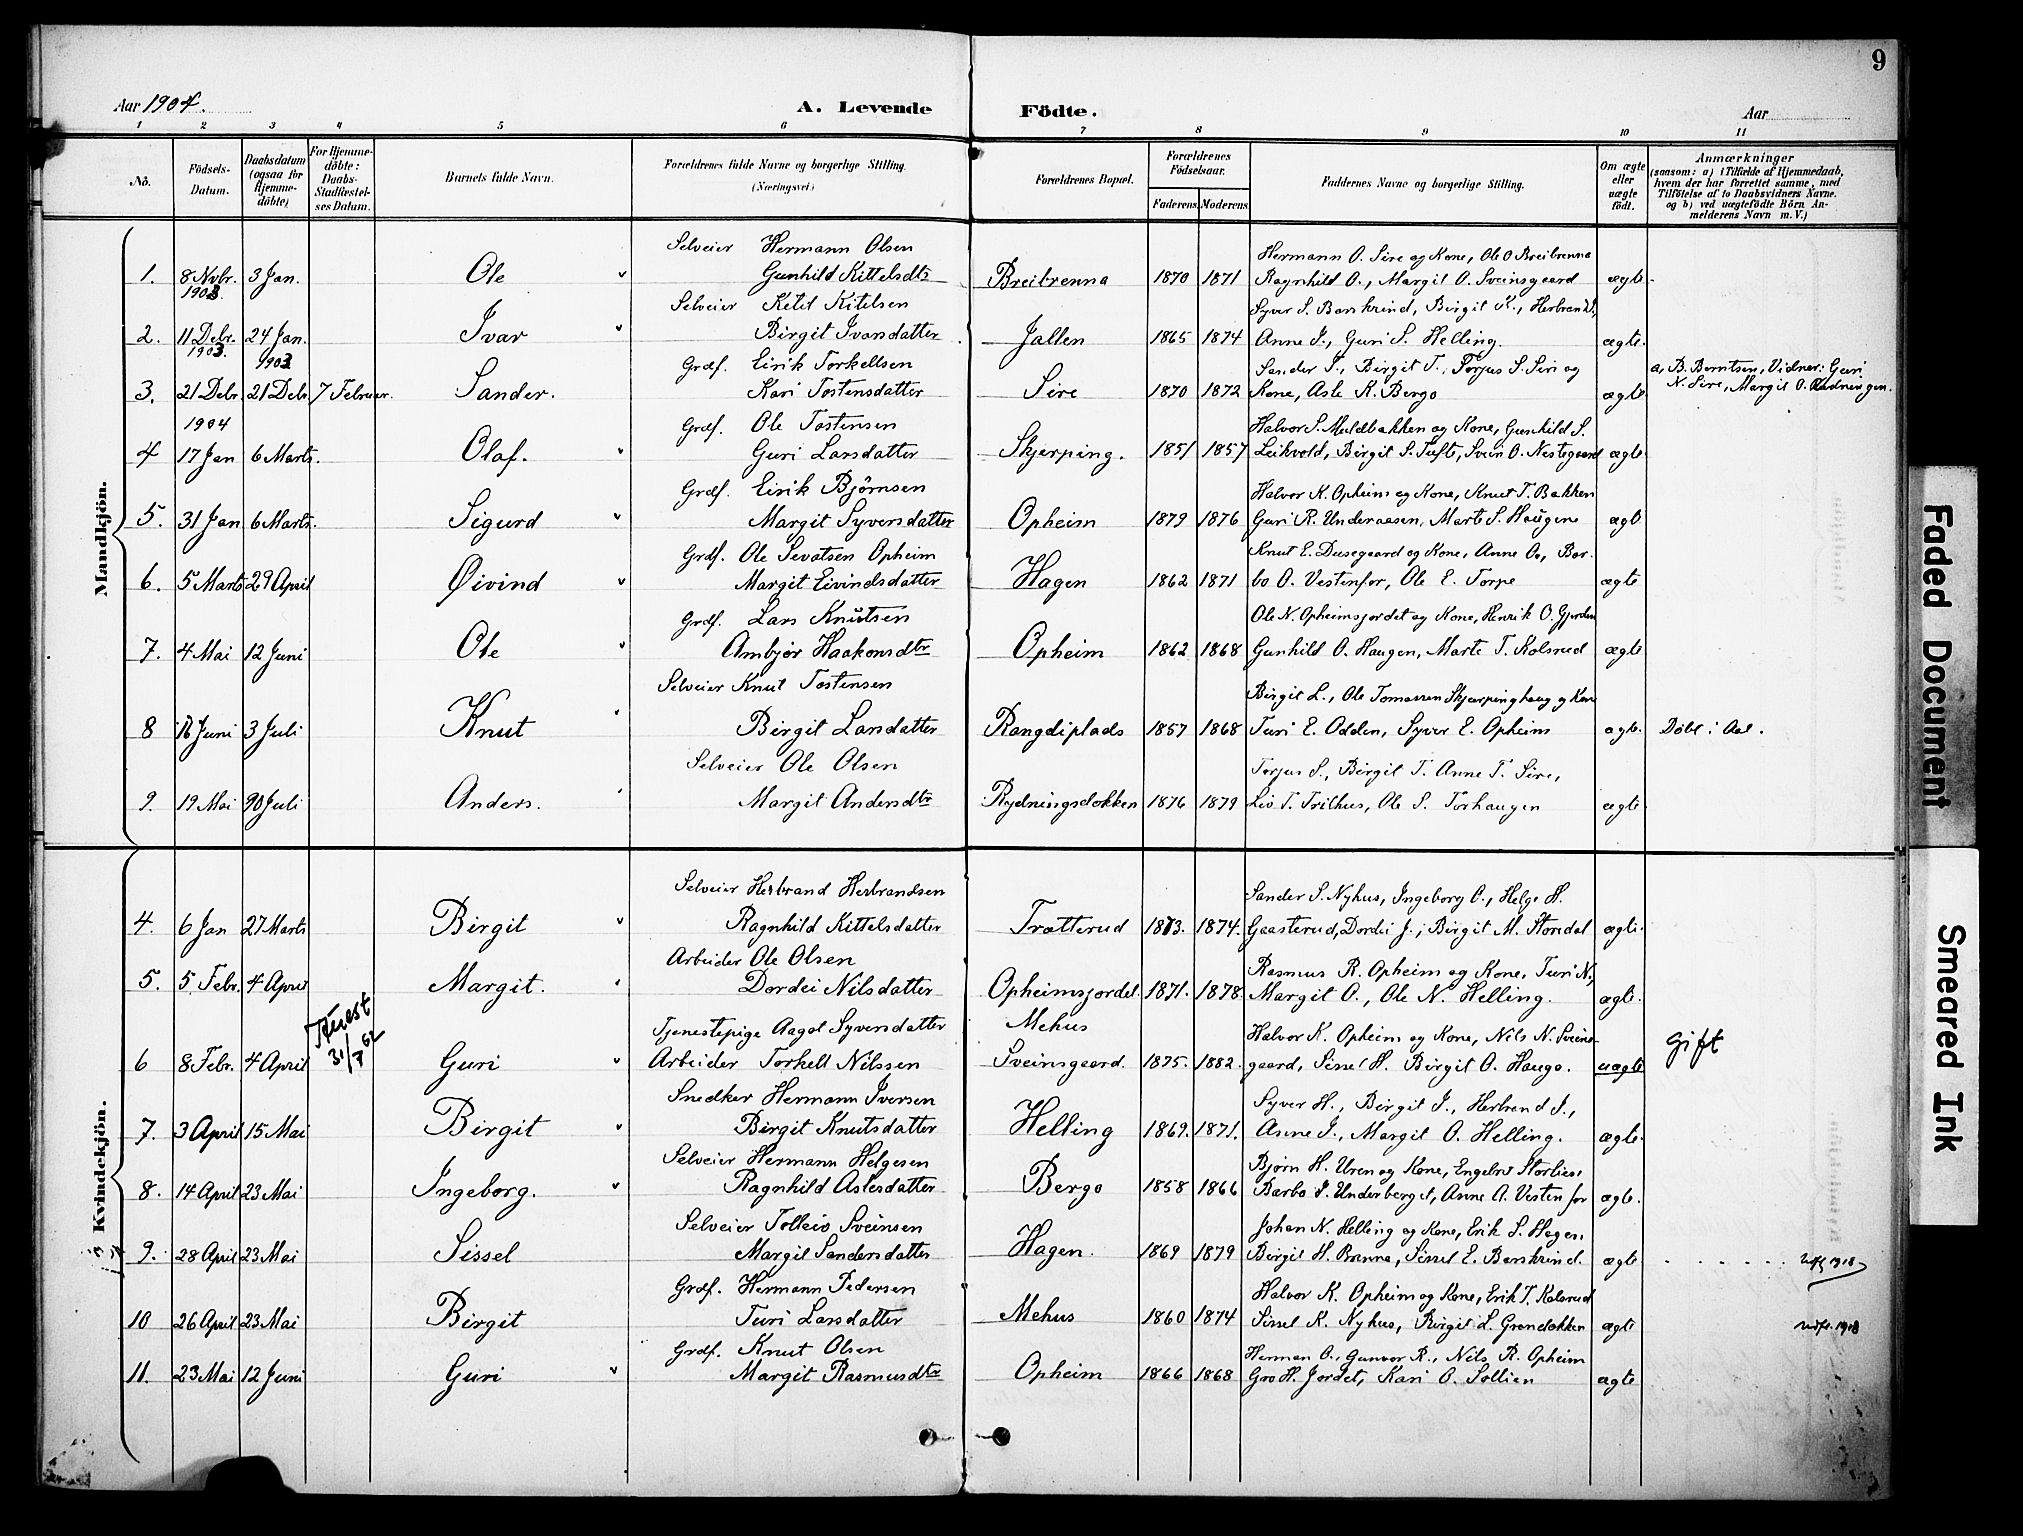 9
Aar 1904.
A. Levende Födte.
Aar
1 2 3 4 5 6 7 8 9 10 11
No.
Födsels-Datum.
Daabsdatum (ogsaa for Hjemme-döbte)
For Hjemme-döbte: Daabs-Stadfæstel-ses Datum.
Barnets fulde Navn.
Forældrenes fulde Navne og borgerlige Stilling. (Næringsvei.)
Forældrenes Bopæl.
Forældrenes Födselsaar.
Faderens. Moderens.
Faddernes Navne og borgerlige Stilling.
Om ægte eller uægte födt.
Anmærkninger
(saasom: a) i Tilfælde af Hjemmedaab, hvem der har forrettet samme, med Tilföielse af to Daabsvidners Navne. og b) ved uægtefödte Börn An-melderens Navn m. V.)
Mandkjön.
Selveier Hermann Olsen Hermann O. Sire og Kone, Ole O Breibrenna
1. 8 Nvbr. 3 Jan. Ole Gunhild Kittelsdtr Breibrenna 1870 1871 Ragnhild O., Margit O. Sveinsgaard ægte.
1903. Selveier Ketil Kitelsen Syver S. Barskrind, Birgit K., Herbrand I,
2. 11 Debr. 24 Jan. Ivar Birgit Ivarsdatter Jallen 1865 1874 Anne I., Guri S. Helling. ægte.
1903. 1903 Grdf. Eirik Torkellsen Sander T., Birgit T., Torjus S. Siri og a, B. Berntsen, Vidner: Guri
3. 21 Debr. 21 Debr. 7 Februar. Sander. Kari Tostensdatter Sire 1870 1872 Kone, Asle K. Bergo ægte N. Sire, Margit O. Rudningen.
1904 Grdf. Ole Tostensen Halvor S. Muldbakken og Kone, Gunhild S.
4 17 Jan 6 Marts. Olaf. Guri Larsdatter Skjerping. 1851 1857 Leikvold, Birgit S. Tufte, Svein O. Nestegaard ægte
Grdf. Eirik Bjørnsen Halvor K. Opheim og Kone, Knut T. Bakken
5. 31 Jan 6 Marts. Sigurd Margit Syversdatter Opheim 1879 1876 Guri R. Underaasen, Marte S. Haugene ægte
Grdf. Ole Sevatsen Opheim Knut E. Dusegaard og Kone, Anne O., Bar-
6. 5 Marts 29 April Øivind Margit Eivindsdatter Hagen 1862 1871 bo O. Vestenfor, Ole E. Torpe ægte
Grdf. Lars Knutsen Ole N. Opheimsjordet og Kone, Henrik O. Gjerden
7. 4 Mai 12 Juni Ole Ambjør Haakonsdtr Opheim 1862 1868 Gunhild O. Haugen, Marte T. Kolsrud ægte
Selveier Knut Tostensen Birgit L., Ole Tomassen Skjerpinghaug og Kone
8 16 Juni 3 Juli Knut Birgit Larsdatter Rangdiplads 1857 1868 Turi E. Odden, Syver E. Opheim ægte. Døbt i Aal.
Selveier Ole Olsen Torjus S., Birgit T. Anne T. Sire,
9. 19 Mai Juli Anders. Margit Andersdtr Rydningsdokken 1876 1879 Liv T. Trilhus, Ole S. Torhaugen ægte
Kvindekjön.
Selveier Herbrand Herbrandsen Sander S. Nyhus, Ingeborg O., Helge H.
4. 6 Jan 27 Marts Birgit Ragnhild Kittelsdatter Trætterud 1873. 1874. Gaasterud, Dordei J., Birgit M. Stordal ægte.
Arbeider Ole Olsen Rasmus R. Opheim og Kone, Turi N.,
5. 5 Febr. 4 April Margit. Dordei Nilsdatter Opheimsjordet. 1871. 1878. Margit O., Ole N. Helling. ægte.
31/7 62 Tjenestepige Aagot Syversdatter Mehus Halvor K. Opheim og Kone, Nils N. Sveins- gift
6 8 Febr. 4 April Guri Arbeider Torkell Nilssen Sveinsgaard. 1875. 1882. gaard, Sissel H. Birgit O. Haugo. uægte
Snedker Hermann Iversen Syver H., Birgit I., Herbrand I.,
7. 3 April 15 Mai Birgit Birgit Knutsdatter Helling 1869. 1871. Anne I., Margit O. Helling. ægte.
Selveier Hermann Helgesen Bjørn H. Uren og Kone, Engebret Storlien,
8. 14 April 23 Mai Ingeborg. Ragnhild Aslesdatter Bergo 1858 1866 Barbo I. Underberget, Anne A. Vestenfor ægte.
Selveier Tolleiv Sveinsen Johan N. Helling og Kone, Erik S. Hagen,
9. 28 April 23 Mai Sissel Margit Sandersdatter Hagen. 1869 1879 Birgit H. Brenna, Sissel E. Barskrind. ægte . . . . . . Udfl 1918
Grdf. Hermann Pedersen Halvor K. Opheim og Kone, Erik T. Kolsrud
10 26 April 23 Mai Birgit Turi Larsdatter Mehus 1860 1874 Sissel K. Nyhus, Birgit L. Grøndokken ægte Udfl. 1918
Grdf. Knut Olsen Herman O., Gunvor R., Nils R. Opheim
11. 23 Mai 12 Juni Guri Margit Rasmusdtr Opheim 1866 1868 Gro H. Jordet, Kari O. Sollien ægte
Faded Document
Smeared Ink